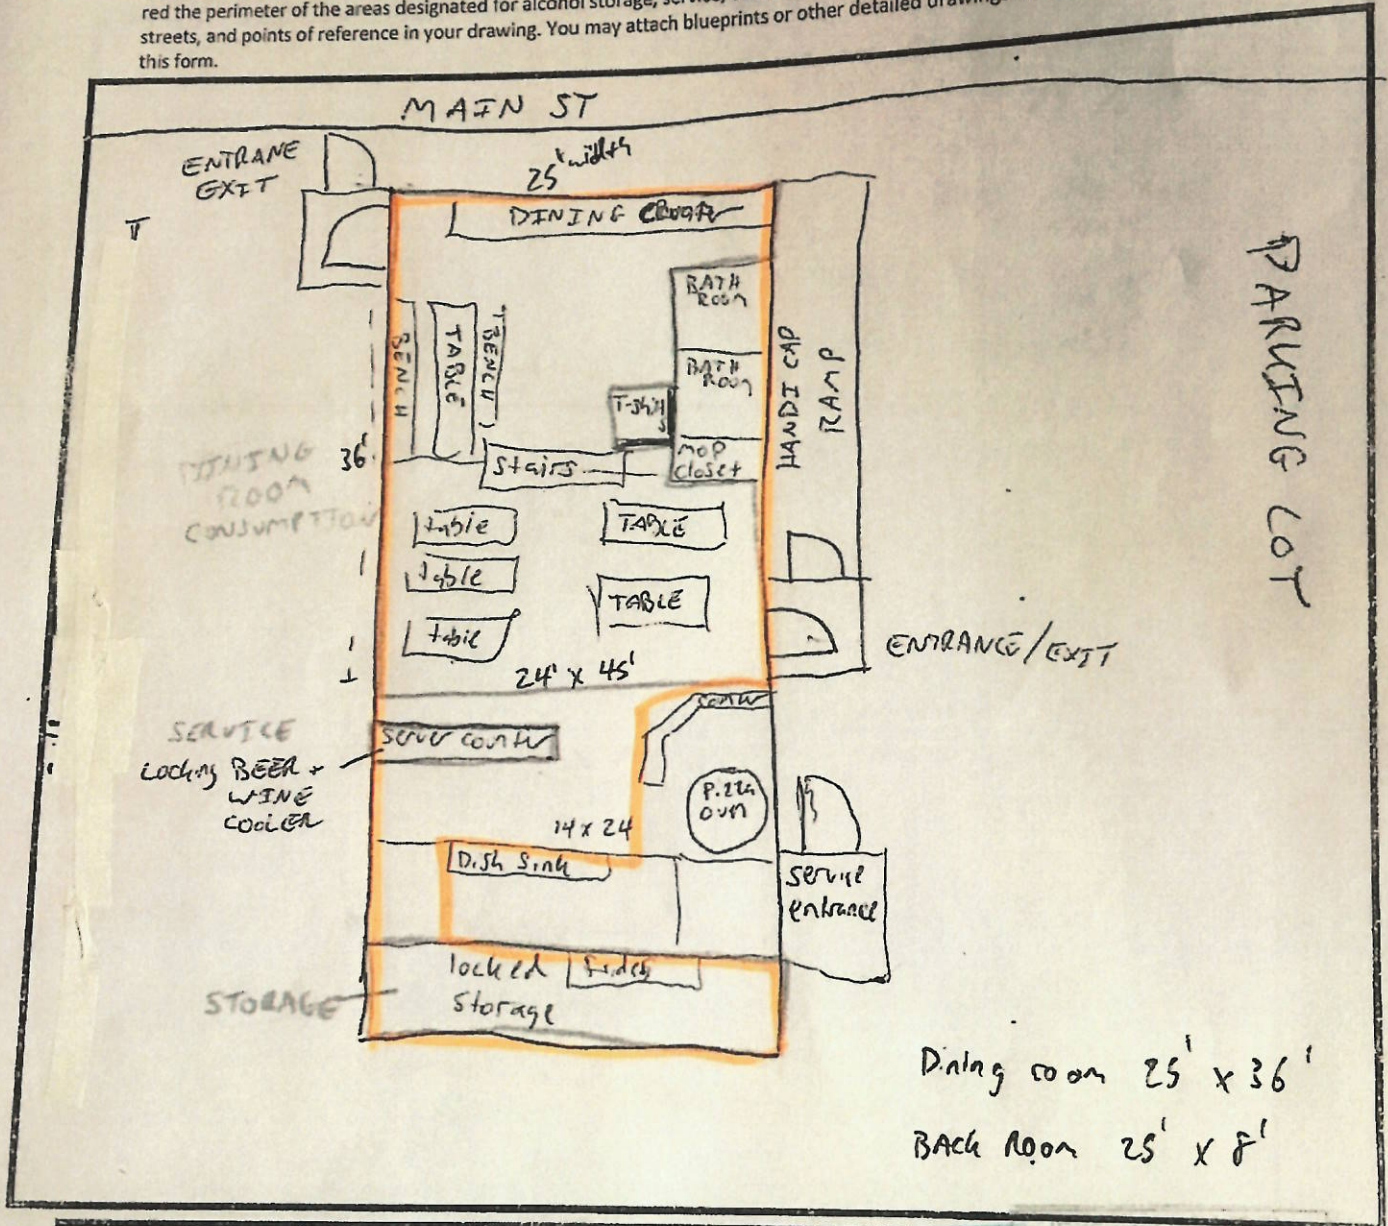 red the perimeter of the areas designated for alcohol storage,
streets, and points of reference in your drawing. You may attach blueprints or other detailed
this form.
MAIN ST
ENTRANE
EXIT
25' width
DINING
BATH
ROOM
BATH
ROOM
T-shirts
MOP
Closet
BENCH
TABLE
BENCH
Stairs
36'
DINING
ROOM
CONSUMPTION
HANDI CAP
RAMP
PARKING LOT
table
TABLE
table
TABLE
table
24' x 45'
ENTRANCE/EXIT
SERVICE
Locking BEER +
WINE
COOLER
server counter
counter
Pizza
oven
14 x 24
Dish Sink
service
entrance
locked
Storage
Fridges
STORAGE
Dining room 25' x 36'
BACK ROOM 25' x 8'